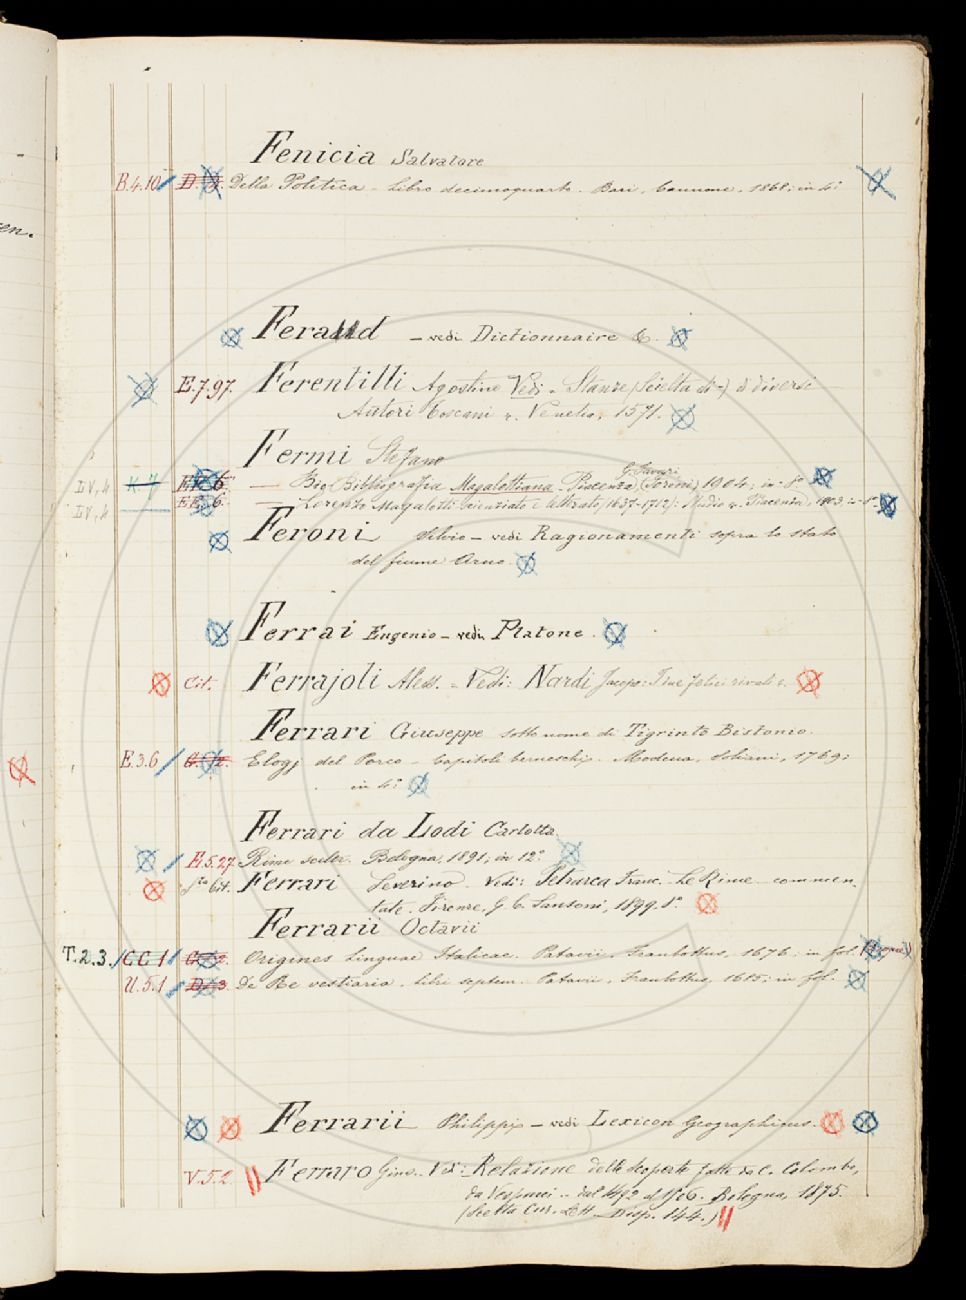 en.
Fenicia Salvatore
B.4.10 Della Politica - Libro decimoquarto. Bari, Cannone, 1868; in 4°
Feraud - vedi Dictionnaire &.
E.7.97. Ferentilli Agostino Vedi - Stanze (Scielta di -) di diversi
Autori Toscani &. Venetia, 1571.
Fermi Stefano
IV, 4 K. 7 EE 6 Bio-Bibliografia Magalottiana - Piacenza (Torini) 1904; in-8°
IV, 4 EE 6. - Lorenzo Magalotti scienziato e letterato, 1637-1712: Studio &. Piacenza, 1903, in-8°
Feroni Silvio - vedi Ragionamenti sopra lo stato
del fiume Arno.
Ferrai Eugenio - vedi, Platone.
Cit. Ferrajoli Aless. - Vedi: Nardi Jacopo: I due felici rivali &.
Ferrari Giuseppe sotto nome di Tigrinto Bistonio.
E.3.6 Elogj del Porco - Capitoli berneschi. Modena, Soliani, 1769;
in 4°
Ferrari da Lodi Carlotta.
E.5.27. Rime scelte. Bologna, 1891, in 12°
Cit. Ferrari Severino - Vedi: Petrarca Franc. Le Rime commen-
tate. Firenze, G. C. Sansoni, 1899. 8°
Ferrarii Octavii
T.2.3. CC 1 Origines Linguae Italicae. Patavii, Frambottus, 1676; in fol.
U.5.1 De Re vestiaria. libri septem. Patavii, Frambottus, in fol.
Ferrarii Philippi - vedi Lexicon Geographicus.
V.5.2. Ferraro Gius. Ved: Relazione delle scoperte fatte da C. Colombo,
da Vespucci .. dal 1492 al 1506. Bologna, 1875.
(Scelta Cur. Lett. Disp. 144.)